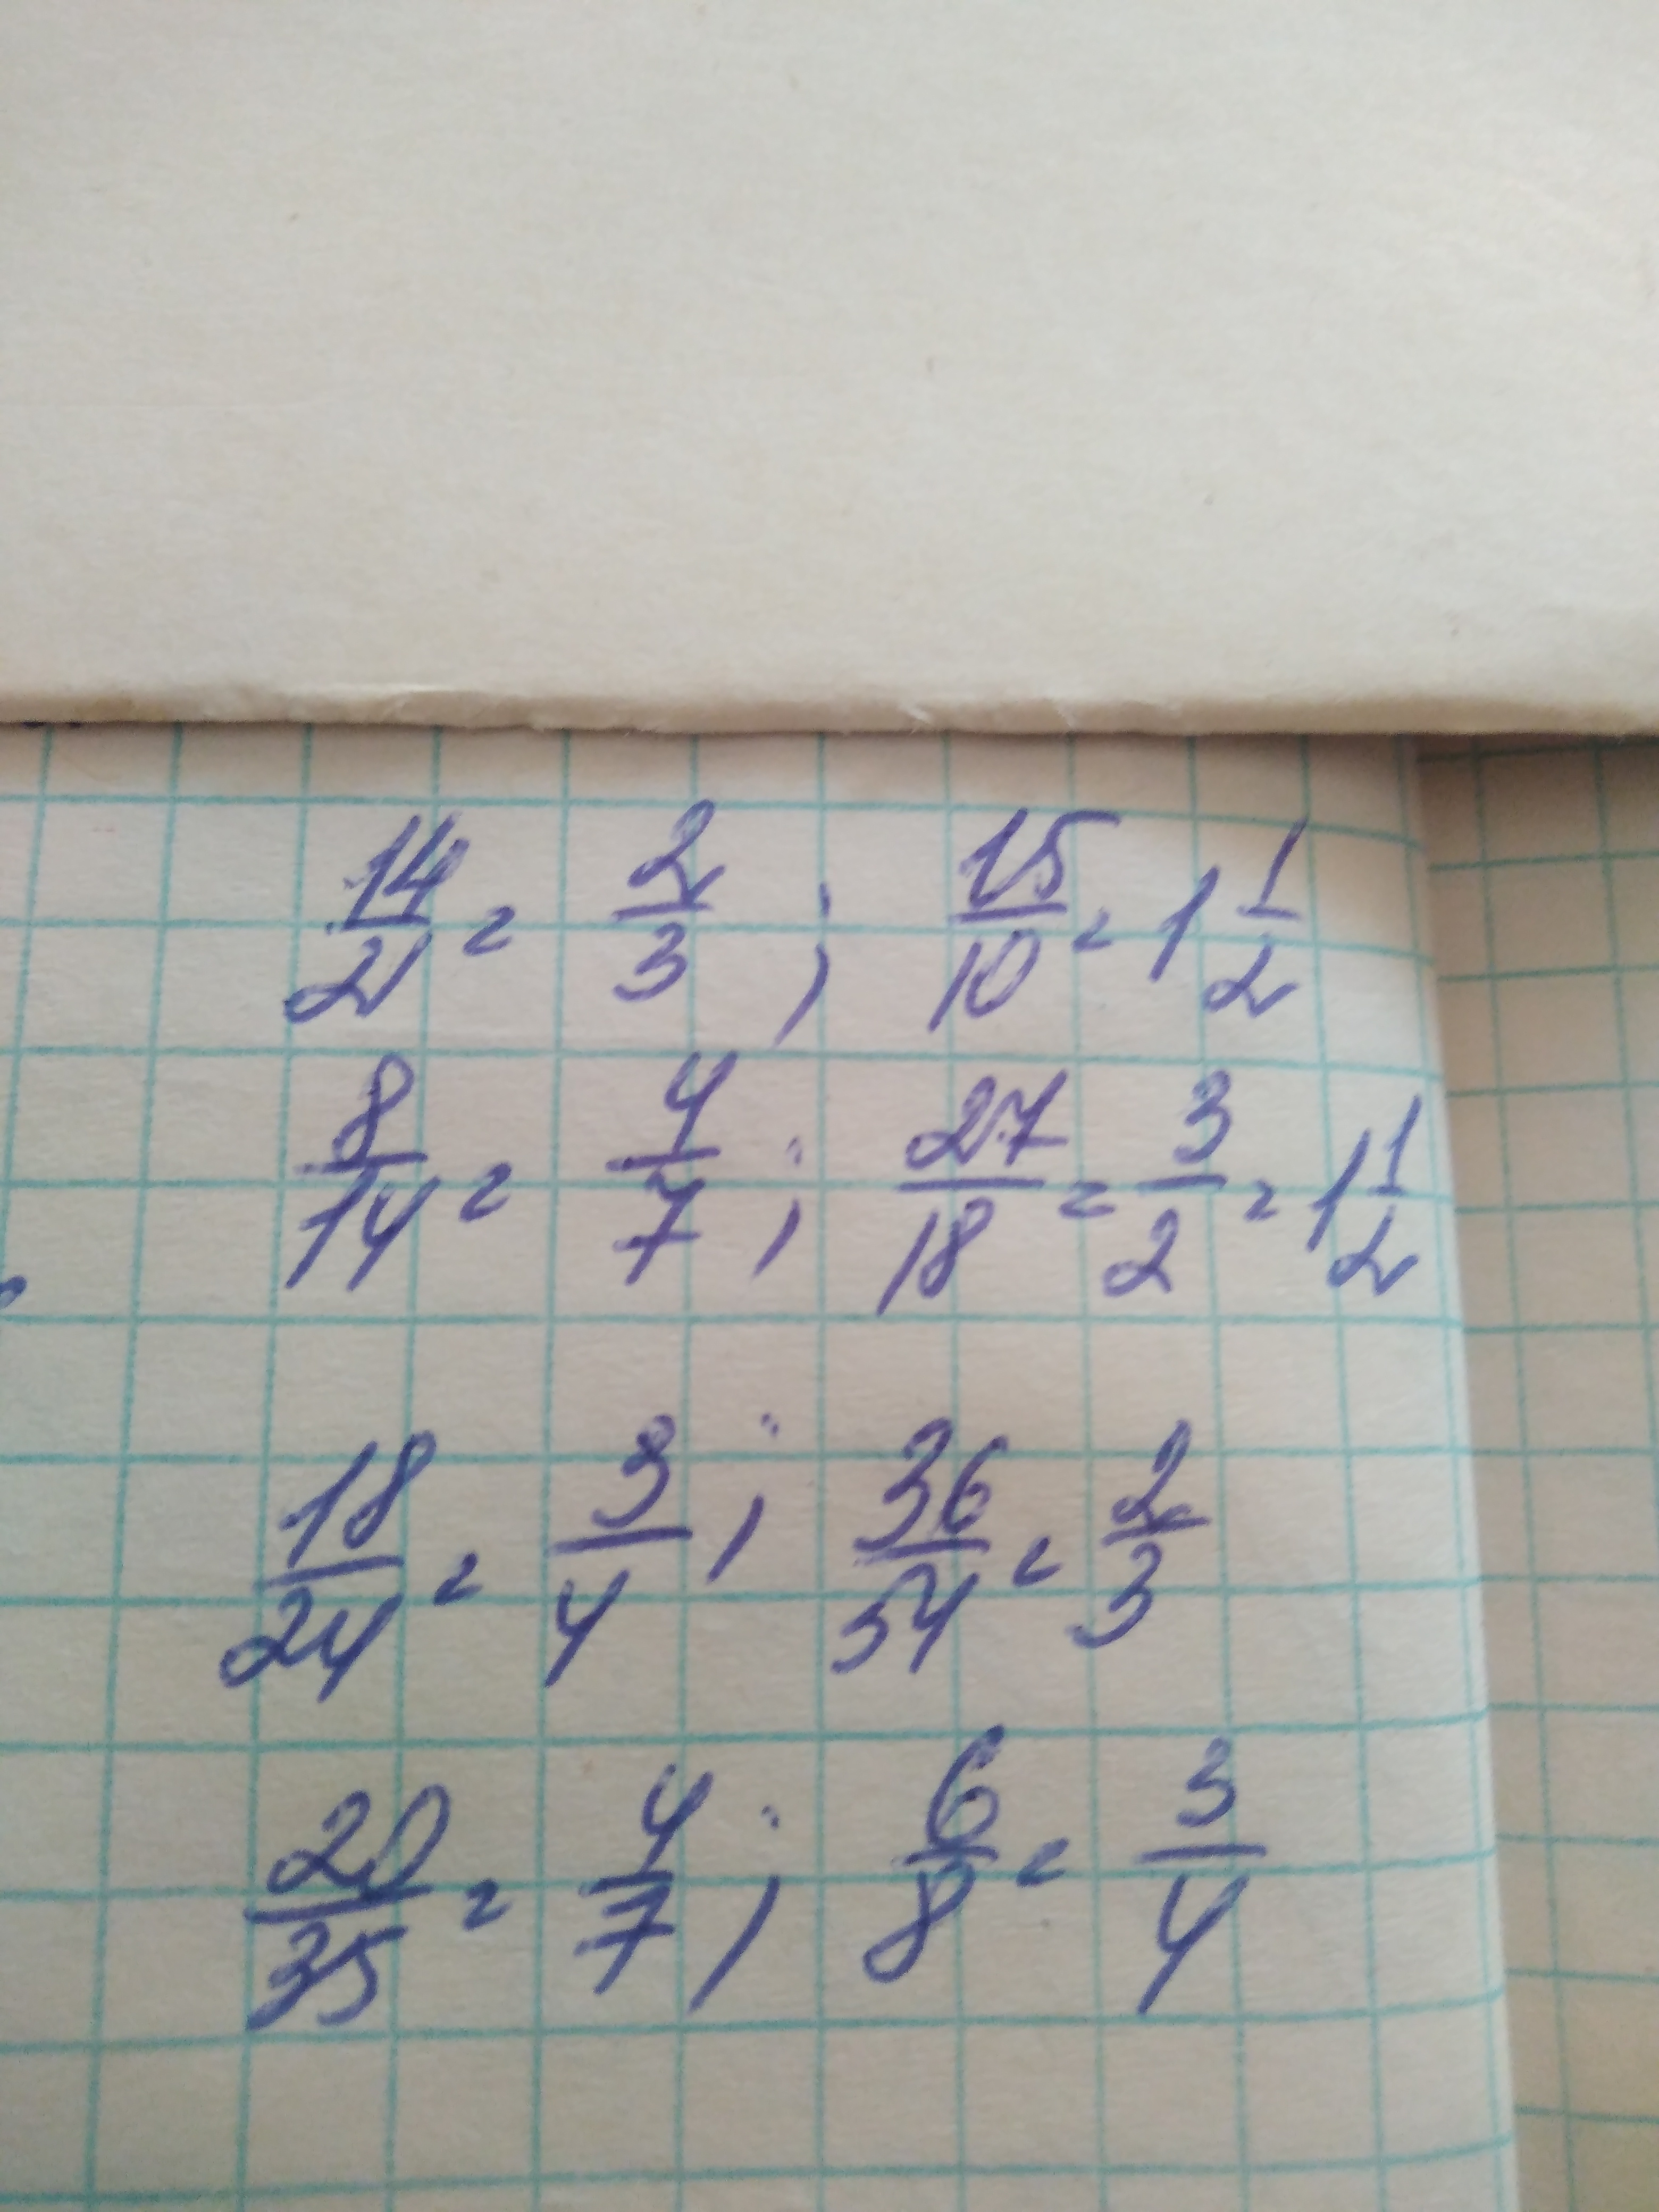 14/21 = 2/3 ; 15/10 = 1 1/2
8/14 = 4/7 ; 27/18 = 3/2 = 1 1/2
18/24 = 3/4 ; 36/54 = 2/3
20/35 = 4/7 ; 6/8 = 3/4